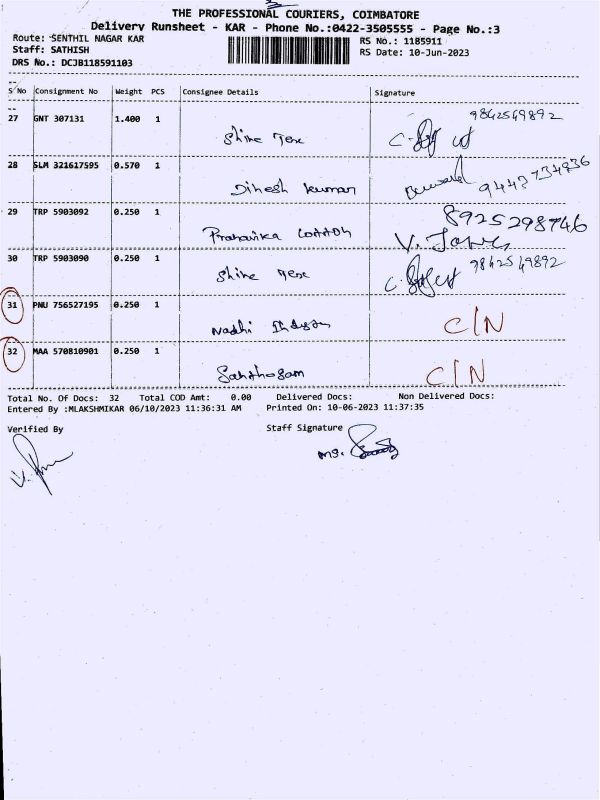 THE PROFESSIONAL COURIERS, COIMBATORE
Delivery Runsheet - KAR - Phone No.:0422-3505555 - Page No.:3
Route: SENTHIL NAGAR KAR
RS No.: 1185911
Staff: SATHISH
RS Date: 10-Jun-2023
DRS No.: DCJB118591103
S No Consignment No Weight PCS Consignee Details Signature
27 GNT 307131 1.400 1 9842549892
Shine
28 SLM 321617595 0.570 1
Dinesh kumar 9443734936
29 TRP 5903092 0.250 1 8925298746
Prahanika
30 TRP 5903090 0.250 1 9842549892
Shine
31 PNU 756527195 0.250 1
Nadhi C/N
32 MAA 570810901 0.250 1
Santhosam C/N
Total No. Of Docs: 32 Total COD Amt: 0.00 Delivered Docs: Non Delivered Docs:
Entered By :MLAKSHMIKAR 06/10/2023 11:36:31 AM Printed On: 10-06-2023 11:37:35
Verified By Staff Signature